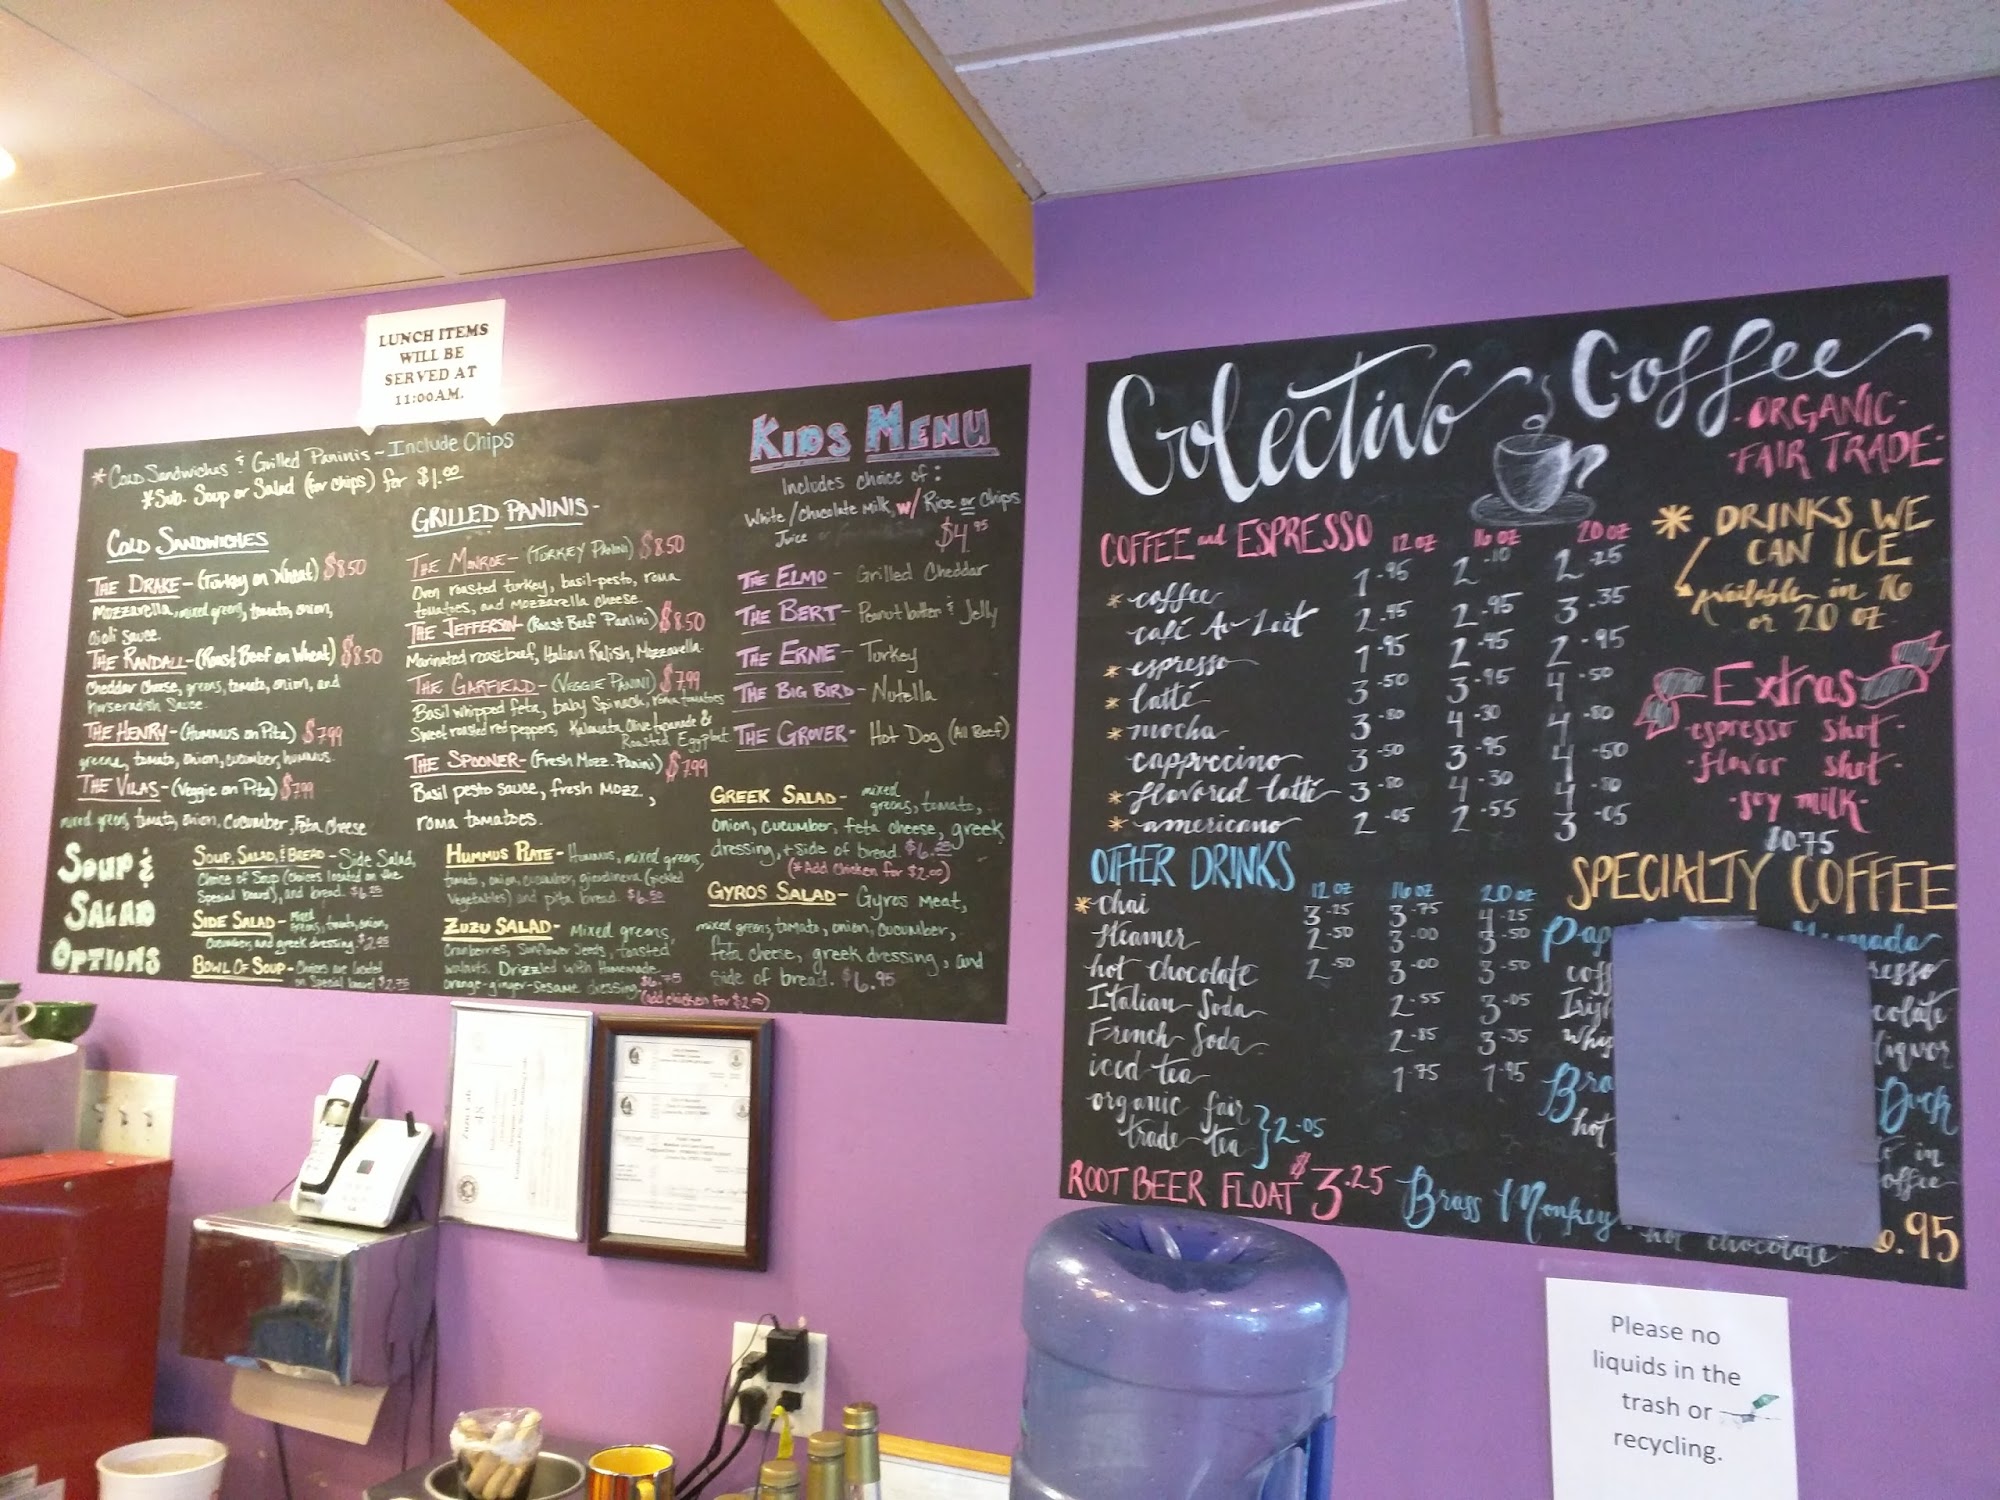 LUNCH ITEMS
WILL BE
SERVED AT
11:00AM.
* Cold Sandwiches & Grilled Paninis - Include Chips
*Sub. Soup or Salad (for chips) for $1.00
COLD SANDWICHES
THE DRAKE - (Turkey on Wheat) $8.50
Mozzarella, mixed greens, tomato, onion,
aioli sauce.
THE RANDALL - (Roast Beef on Wheat) $8.50
Cheddar Cheese, greens, tomato, onion, and
horseradish Sauce.
THE HENRY - (Hummus on Pita) $7.99
greens, tomato, onion, cucumber, hummus.
THE VILAS - (Veggie on Pita) $7.99
mixed greens, tomato, onion, cucumber, Feta cheese
GRILLED PANINIS -
THE MONROE - (TURKEY PANINI) $8.50
Oven roasted turkey, basil-pesto, roma
tomatoes, and mozzarella cheese.
THE JEFFERSON - (Roast Beef Panini) $8.50
Marinated roast beef, Italian Relish, Mozzarella.
THE GARFIELD - (VEGGIE PANINI) $7.99
Basil whipped feta, baby Spinach, roma tomatoes
Sweet roasted red peppers, Kalamata Olive tapanade &
Roasted Eggplant
THE SPOONER - (Fresh Mozz. Panini) $7.99
Basil pesto sauce, fresh mozz,
roma tomatoes.
KIDS MENU
Includes choice of:
White/Chocolate Milk, w/ Rice or Chips
Juice or
$4.95
THE ELMO - Grilled Cheddar
THE BERT - Peanut butter & Jelly
THE ERNIE - Turkey
THE BIG BIRD - Nutella
THE GROVER - Hot Dog (All Beef)
SOUP &
SALAD
OPTIONS
SOUP, SALAD, & BREAD - Side Salad,
Choice of Soup (choices located on the
Special board), and bread. $6.25
SIDE SALAD - Mixed
greens, tomato, onion,
Cucumber, and greek dressing.
BOWL OF SOUP - Choices are located
on Special board $2.75
HUMMUS PLATE - Hummus, mixed greens,
tomato, onion, cucumber, giardinera (pickled
vegetables) and pita bread. $6.50
ZUZU SALAD - Mixed greens
Cranberries, Sunflower Seeds, toasted
walnuts. Drizzled with Homemade
orange-ginger-sesame dressing $6.75
(add chicken for $2.00)
GREEK SALAD - mixed
greens, tomato,
Onion, cucumber, feta cheese, greek
dressing, + side of bread. $6.25
(*Add Chicken for $2.00)
GYROS SALAD - Gyros meat,
mixed greens, tomato, onion, cucumber,
feta cheese, greek dressing, and
side of bread. $6.95
Colectivo Coffee
-ORGANIC-
-FAIR TRADE-
COFFEE and ESPRESSO 12 oz 16 oz 20 oz
* coffee 1.95 2.10 2.25
café Au Lait 2.45 2.95 3.35
* espresso 1.95 2.45 2.95
* latté 3.50 3.95 4.50
* mocha 3.80 4.30 4.80
cappuccino 3.50 3.95 4.50
* flavored latté 3.80 4.30 4.80
* americano 2.05 2.55 3.05
* DRINKS WE
CAN ICE
Available in 16
or 20 oz.
Extras
-espresso shot-
-flavor shot-
-soy milk-
$0.75
OTHER DRINKS 12 oz 16 oz 20 oz
* chai 3.25 3.75 4.25
steamer 2.50 3.00 3.50
hot chocolate 2.50 3.00 3.50
Italian Soda 2.55 3.05
French Soda 2.85 3.35
iced tea 1.75 1.95
organic fair
trade tea } 2.05
ROOT BEER FLOAT $3.25
SPECIALTY COFFEE
Duck
hot
in
Brass Monkey
hot chocolate
.95
Please no
liquids in the
trash or
recycling.